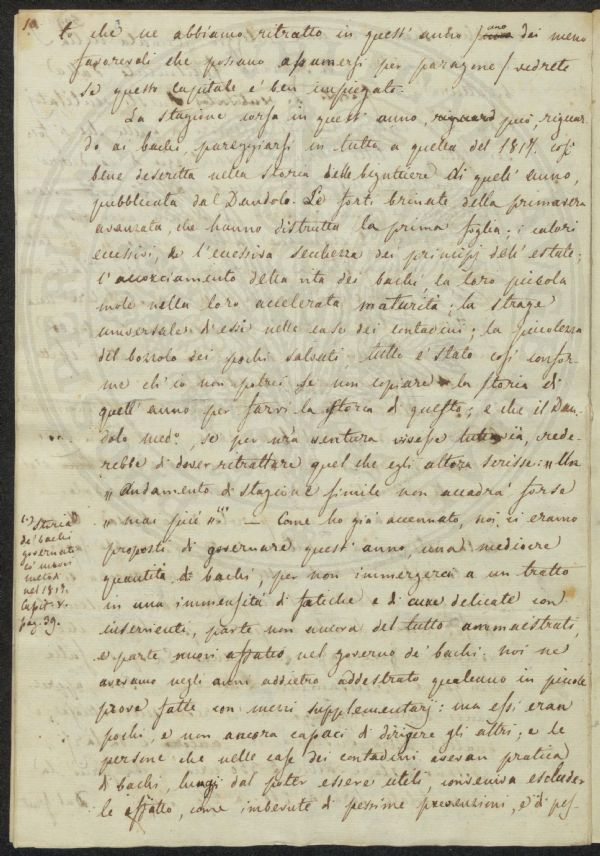 10
to che ne abbiamo ritratto in quest' anno / uno dei meno
favorevoli che possano assumersi per paragone / vedrete
se questo capitale e' ben impiegato.
La stagione corsa in quest' anno, può, riguar-
do ai bachi, pareggiarsi in tutto a quella del 1817. così
bene descritta nella storia delle bigattiere di quell' anno,
pubblicata dal Dandolo. Le forti brinate della primavera
avanzata, che hanno distrutta la prima foglia; i calori
eccessivi, e l'eccessiva secchezza dei principj dell' estate;
l'accorciamento della vita dei bachi, la loro piccola
mole nella loro accelerata maturità; la strage
universale d'essi nelle case dei contadini; la piccolezza
del bozzolo dei pochi salvati, tutto è stato così confor-
me ch' io non potrei se non copiare la storia di
quell' anno per farvi la storia di questo; e che il Dan-
dolo med.o, se per n'ra ventura vivesse tuttavia, crede-
rebbe di dover ritrattare quel che egli allora scrisse: „ Un
„ andamento di stagione simile non accadrà forse
„ mai più „(*) — Come ho già accennato, noi ci eramo
proposti di governare quest' anno, una mediocre
quantità di bachi, per non immergerci a un tratto
in una immensità di fatiche e di cure delicate con
inservienti, parte non ancora del tutto ammaestrati,
e parte nuovi affatto, nel governo de' bachi. noi ne
avevamo negli anni addietro addestrato qualcuno in piccole
prove fatte con mezzi supplementarj: ma essi eran
pochi, e non ancora capaci di dirigere gli altri; e le
persone che nelle case dei contadini avevan pratica
di bachi, lungi dal poter essere utili, conveniva escluder-
le affatto, come imbevute di pessime prevenzioni, e di pes-
(*) Storia
de' bachi
governati
co' nuovi
metodi
nel 1817.
Capit. V.
pag. 39.